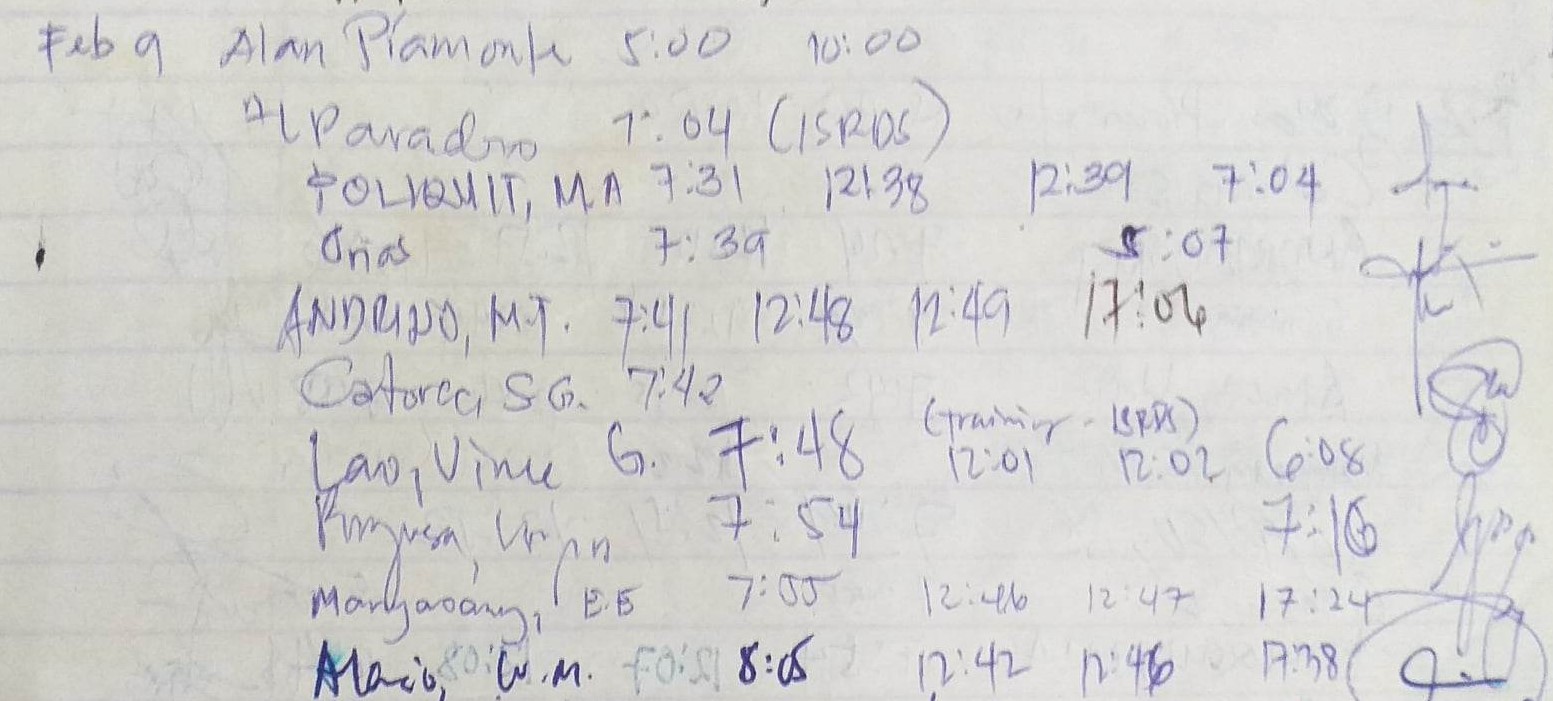 Feb 9 Alan Piamonte 5:00 10:00
Al Paradero 7:04 (ISRDS)
POLIQUIT, MA 7:31 12:38 12:39 7:04
Oñas 7:39 5:07
ANDRINO, M.T. 7:41 12:48 12:49 17:06
Catorce, S G. 7:42
(training - ISRDS)
Lao, Vince G. 7:48 12:01 12:02 6:08
7:54 7:16
E.E 7:55 12:46 12:47 17:24
W.M. 8:05 12:42 12:46 17:38